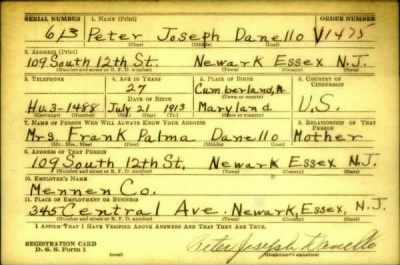 SERIAL NUMBER 1. NAME (Print)
613 Peter Joseph Danello V1475
(First) (Middle) (Last)
2. ADDRESS (Print)
109 South 12th St. Newark Essex N.J.
(Number and street or R. F. D. number) (Town) (County) (State)
3. TELEPHONE 4. AGE IN YEARS 5. PLACE OF BIRTH 6. COUNTRY OF CITIZENSHIP
27 Cumberland,
DATE OF BIRTH (Town or county)
Hu.3-1488 July 21 1913 Maryland U.S.
(Exchange) (Number) (Mo.) (Day) (Yr.) (State or country)
7. NAME OF PERSON WHO WILL ALWAYS KNOW YOUR ADDRESS 8. RELATIONSHIP OF THAT PERSON
Mrs. Frank Palma Danello Mother
(Mr., Mrs., Miss) (First) (Middle) (Last)
9. ADDRESS OF THAT PERSON
109 South 12th St. Newark Essex N.J.
(Number and street or R. F. D. number) (Town) (County) (State)
10. EMPLOYER'S NAME
Mennen Co.
11. PLACE OF EMPLOYMENT OR BUSINESS
345 Central Ave. Newark, Essex, N.J.
(Number and street or R. F. D. number) (Town) (County) (State)
I AFFIRM THAT I HAVE VERIFIED ABOVE ANSWERS AND THAT THEY ARE TRUE.
REGISTRATION CARD
D. S. S. Form 1 (over) Peter Joseph Danello
(Registrant's signature)